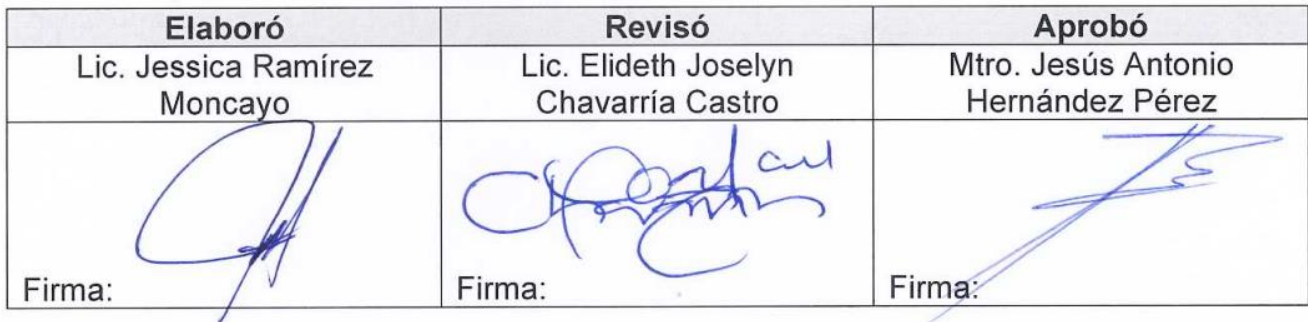 Elaboró
Revisó
Aprobó
Lic. Jessica Ramírez
Moncayo
Lic. Elideth Joselyn
Chavarría Castro
Mtro. Jesús Antonio
Hernández Pérez
Firma:
Firma:
Firma: